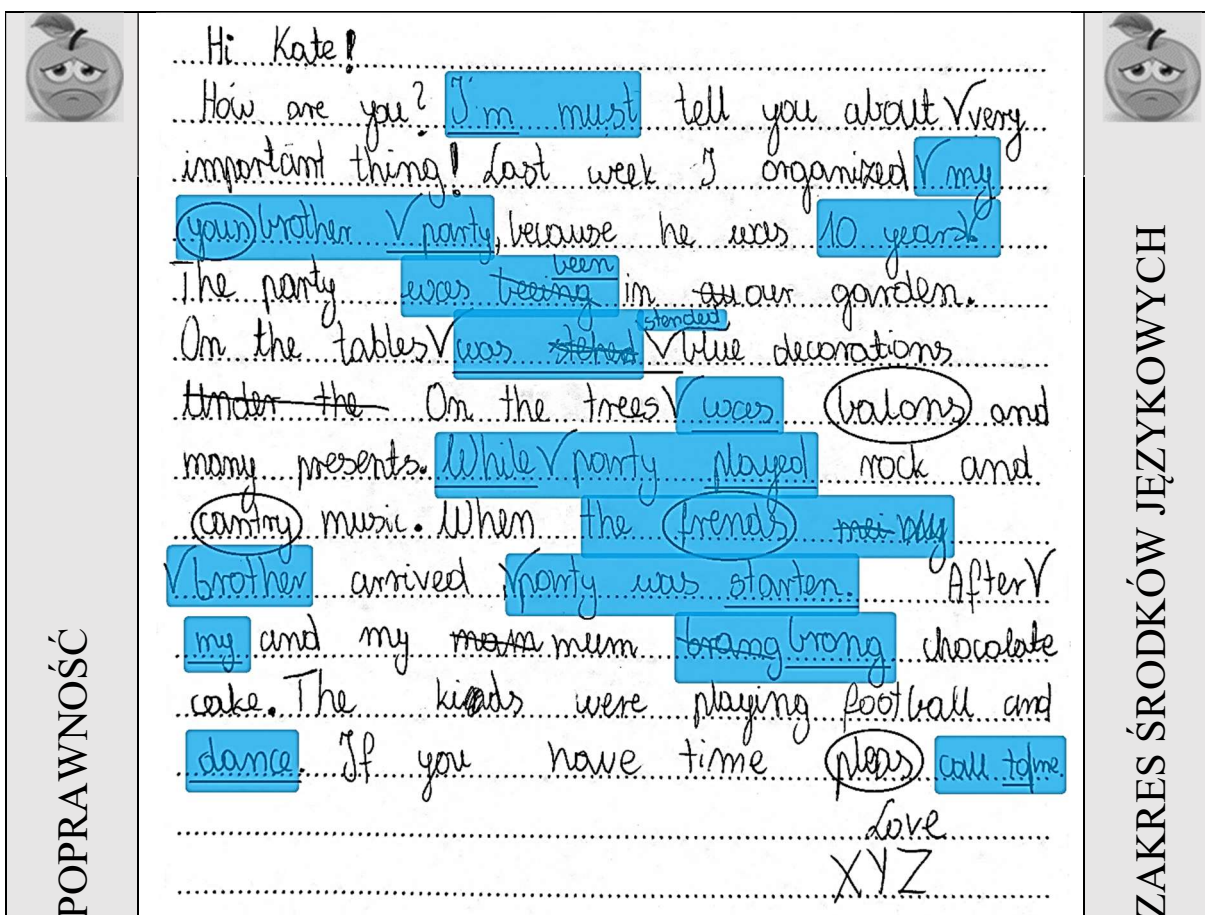 Hi Kate!
How are you? I'm must tell you about V very
important thing! Last week I organized V my
youn brother V party, because he was 10 years V
The party was beeing been in our garden.
On the tables V was stended V blue decorations
Under the On the trees V was balons and
many presents. While V party played rock and
cantry music. When the frends my
V brother arrived V party was starten. After V
my and my mam mum brang brong chocolate
cake. The kids were playing football and
dance. If you have time pleas call to me.
Love
XYZ
POPRAWNOŚĆ
ZAKRES ŚRODKÓW JĘZYKOWYCH